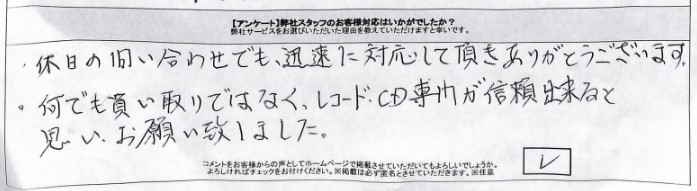 【アンケート】弊社スタッフのお客様対応はいかがでしたか?
弊社サービスをお選びいただいた理由を教えていただけますと幸いです。
・休日の問い合わせでも、迅速に対応して頂きありがとうございます。
・何でも買い取りではなく、レコード、CD専門が信頼出来ると
思い、お願い致しました。
コメントをお客様からの声としてホームページで掲載させていただいてもよろしいでしょうか。
よろしければチェックをお付けください。※掲載は必ず匿名とさせていただきます。※任意